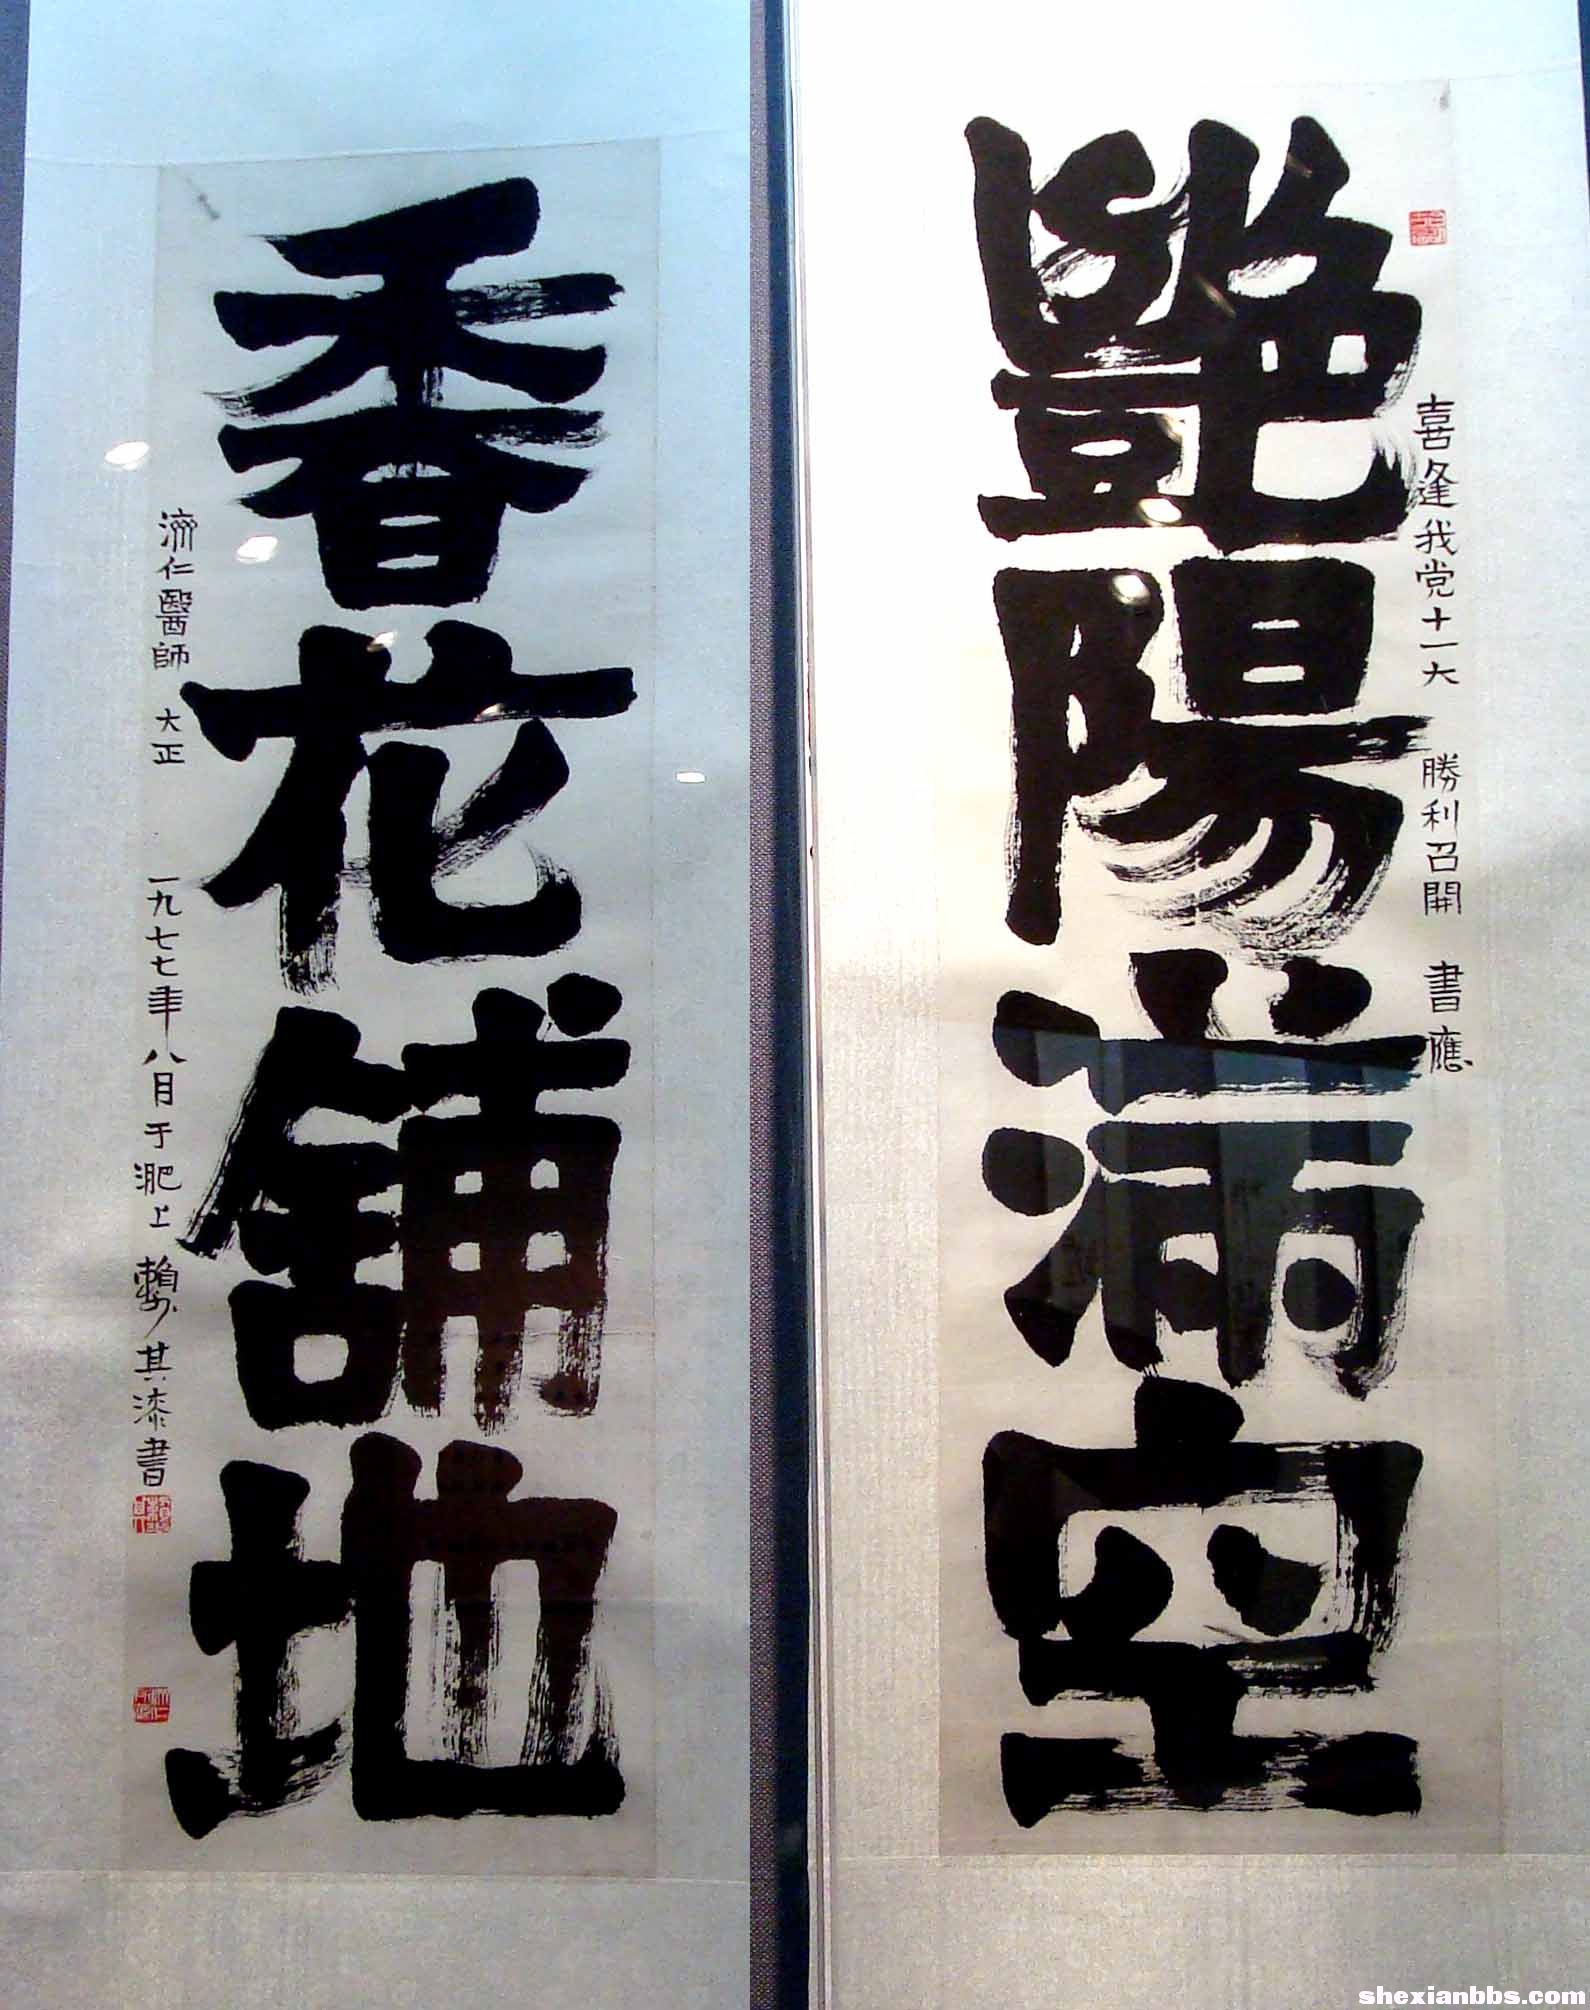 喜逢我党十一大 勝利召開 書應
艷陽滿空
香花舖地
濟仁醫師 大正 一九七七年八月于淝上 賴少其漆書
shexianbbs.com